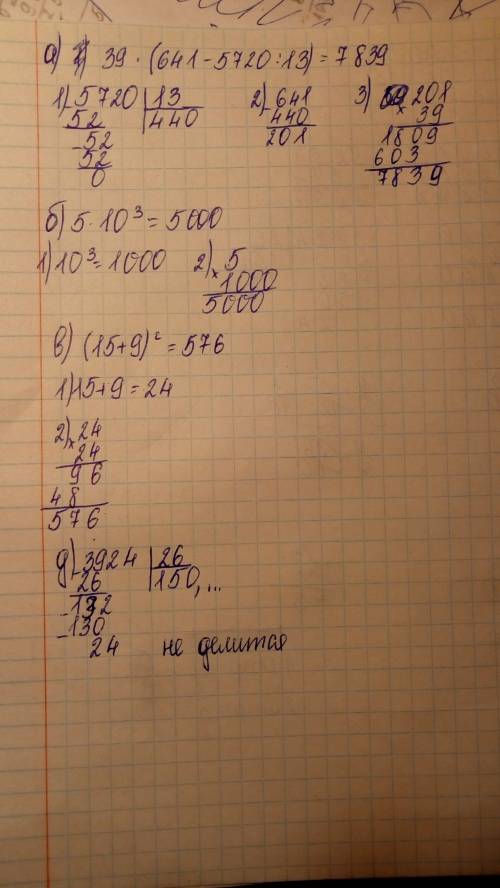 а) 39 · (641 - 5720 : 13) = 7839
1) 5720 | 13
52 440
- 52
52
0
2) - 641
440
201
3) 201
× 39
1809
603
7839
б) 5 · 10³ = 5000
1) 10³ = 1000
2) 5
× 1000
5000
в) (15+9)² = 576
1) 15+9 = 24
2) 24
× 24
96
48
576
д) - 3924 | 26
26 150, ...
- 132
- 130
24 не делится